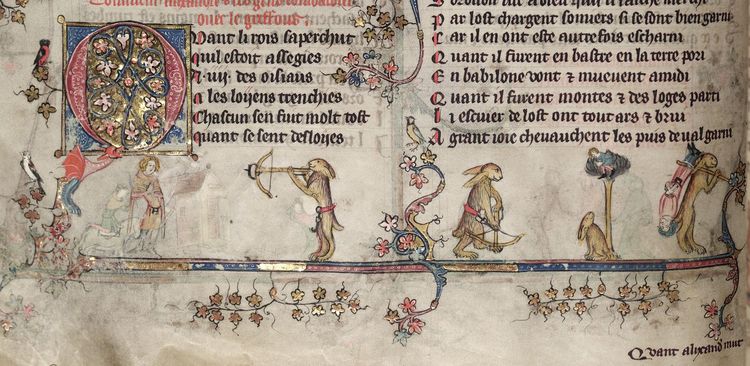 ouec le griffons
Quant li rois saperchut
quil estoit assegies
A .iiij. des oisiaus
a les loyens trenchies
Chascun sen fuit molt tost
quant se sent desloyes
dit a dieu qui li faiche merchi
Par lost chargent somiers si se sont bien garni
Car il en ont este autrefois escharni
Quant il furent en hastre en la terre pori
En babilone vont ⁊ mueuent amidi
Quant il furent montes ⁊ des loges parti
Li escuier de lost ont tout ars ⁊ brui
A grant ioie cheuauchent les puis de ual garni
Quant alixand mut